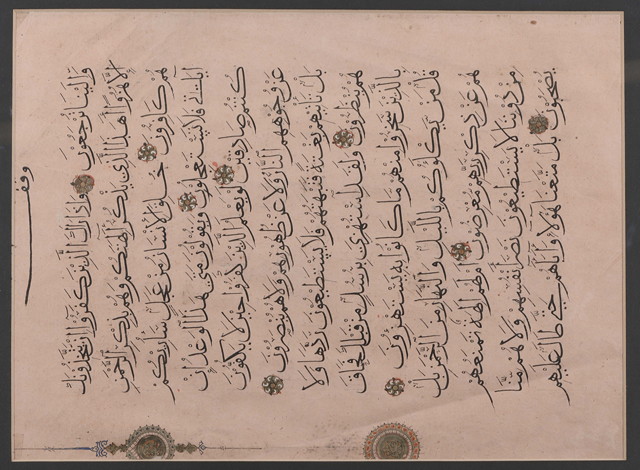 وقف
وَإِلَيْنَا تُرْجَعُونَ وَإِذَا رَآكَ الَّذِينَ كَفَرُوا إِنْ يَتَّخِذُونَكَ
إِلَّا هُزُوًا أَهَذَا الَّذِي يَذْكُرُ آلِهَتَكُمْ وَهُمْ بِذِكْرِ الرَّحْمَنِ
هُمْ كَافِرُونَ خُلِقَ الْإِنْسَانُ مِنْ عَجَلٍ سَأُرِيكُمْ
آيَاتِي فَلَا تَسْتَعْجِلُونِ وَيَقُولُونَ مَتَى هَذَا الْوَعْدُ إِنْ
كُنْتُمْ صَادِقِينَ لَوْ يَعْلَمُ الَّذِينَ كَفَرُوا حِينَ لَا يَكُفُّونَ
عَنْ وُجُوهِهِمُ النَّارَ وَلَا عَنْ ظُهُورِهِمْ وَلَا هُمْ يُنْصَرُونَ
بَلْ تَأْتِيهِمْ بَغْتَةً فَتَبْهَتُهُمْ فَلَا يَسْتَطِيعُونَ رَدَّهَا وَلَا
هُمْ يُنْظَرُونَ وَلَقَدِ اسْتُهْزِئَ بِرُسُلٍ مِنْ قَبْلِكَ فَحَاقَ
بِالَّذِينَ سَخِرُوا مِنْهُمْ مَا كَانُوا بِهِ يَسْتَهْزِئُونَ
قُلْ مَنْ يَكْلَؤُكُمْ بِاللَّيْلِ وَالنَّهَارِ مِنَ الرَّحْمَنِ بَلْ
هُمْ عَنْ ذِكْرِ رَبِّهِمْ مُعْرِضُونَ أَمْ لَهُمْ آلِهَةٌ تَمْنَعُهُمْ
مِنْ دُونِنَا لَا يَسْتَطِيعُونَ نَصْرَ أَنْفُسِهِمْ وَلَا هُمْ مِنَّا
يُصْحَبُونَ بَلْ مَتَّعْنَا هَؤُلَاءِ وَآبَاءَهُمْ حَتَّى طَالَ عَلَيْهِمُ